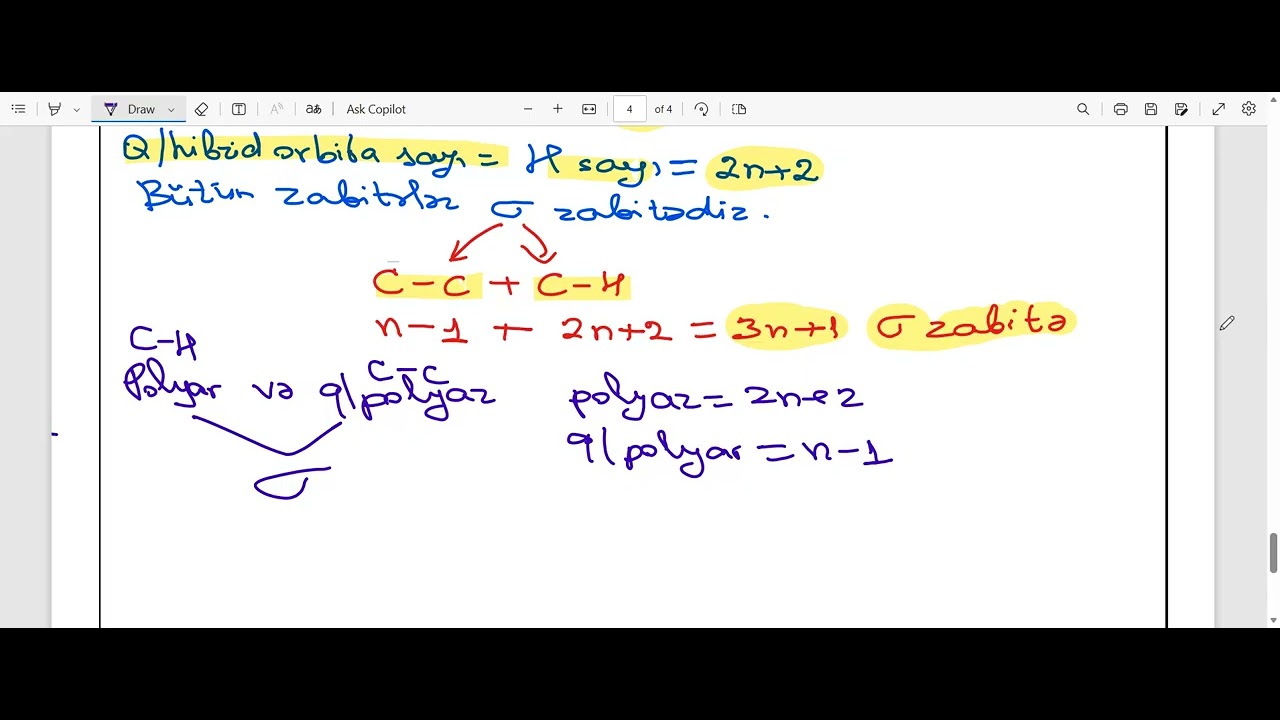 Draw
Ask Copilot
4 of 4
Q/hibrid orbital sayı = H sayı = 2n+2
Bütün rabitələr σ rabitədir.
C-C + C-H
n-1 + 2n+2 = 3n+1 σ rabitə
C-H
C-C
Polyar və q/polyar
polyar = 2n+2
σ
q/polyar = n-1